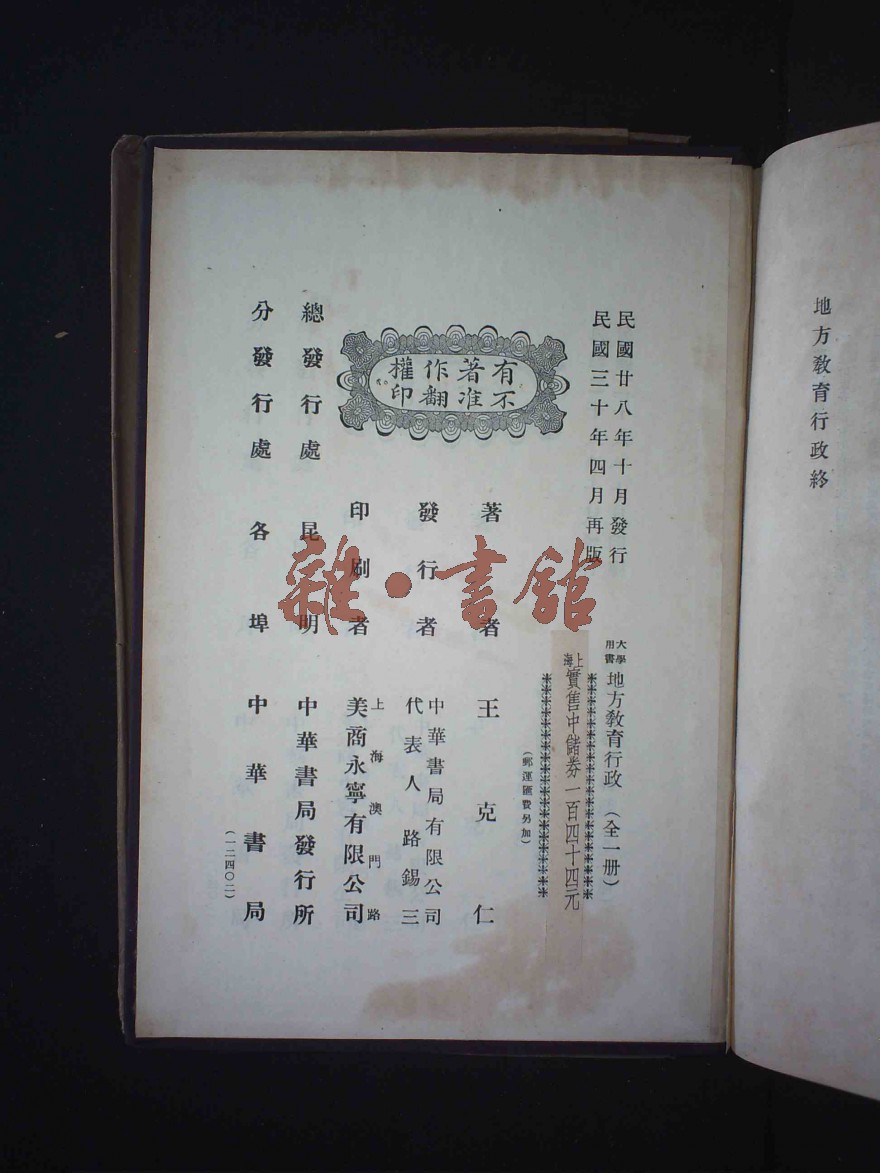 地方教育行政終
民國廿八年十月發行
民國三十年四月再版
大學用書 地方教育行政 (全一册)
上海實售中儲券一百四十四元
(郵運匯費另加)
有著作權
不准翻印
著者 王克仁
發行者 中華書局有限公司
代表人 路錫三
印刷者 上海澳門路
美商永寧有限公司
總發行處 昆明 中華書局發行所
分發行處 各埠 中華書局
(一二四〇二)
雜·書館